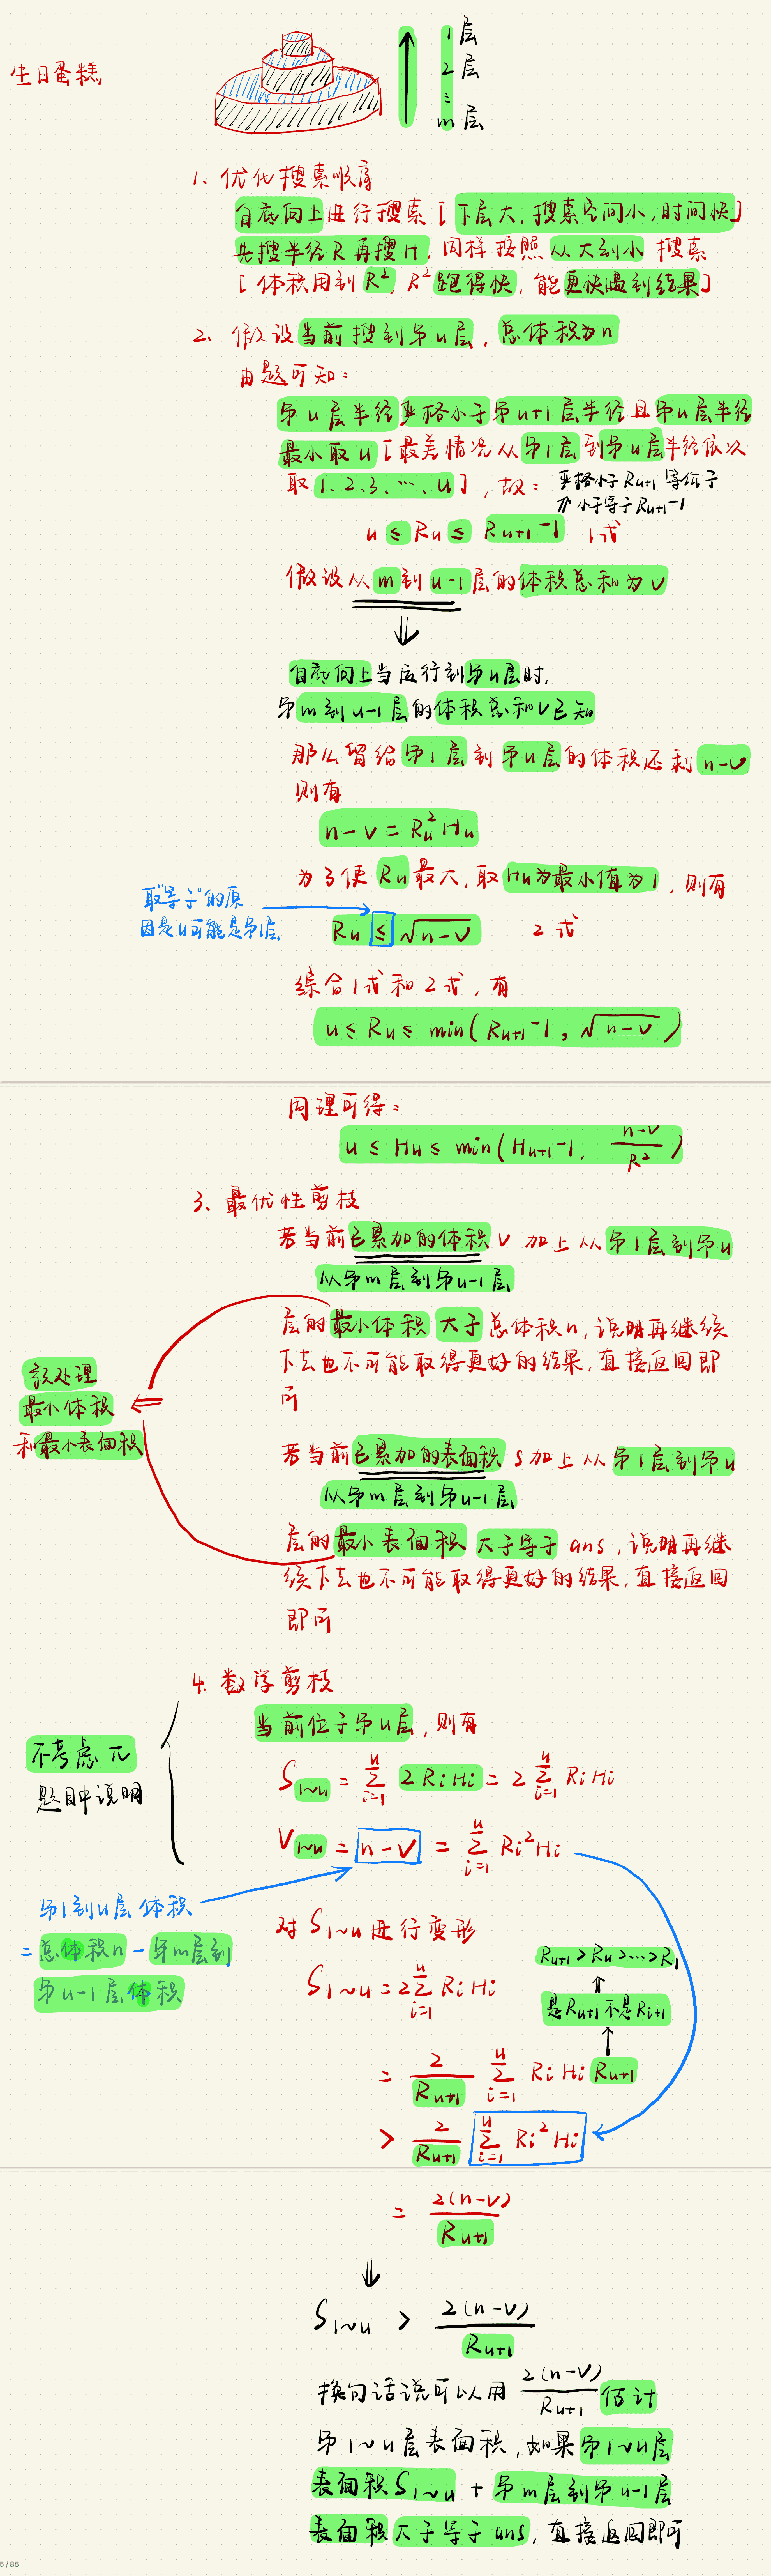 生日蛋糕
1层
2层
⋮
m层
1、优化搜索顺序
自底向上进行搜索[下层大,搜索空间小,时间快]
先搜半径R再搜H,同样按照从大到小 搜索
[体积用到R²,R²跑得快,能更快遇到结果]
2、假设当前搜到第u层,总体积为n
由题可知:
第u层半径严格小于第u+1层半径且第u层半径
最小取u[最差情况从第1层到第u层半径依次
取1、2、3、…、u],故:
严格小于Ru+1等价于
小于等于Ru+1-1
u ≤ Ru ≤ Ru+1-1 1式
假设从m到u-1层的体积总和为v
⇓
自底向上当运行到第u层时,
第m到u-1层的体积总和v已知
那么留给第1层到第u层的体积还剩n-v
则有
n-v = Ru²Hu
为了使Ru最大,取Hu为最小值为1,则有
取"等于"的原
因是u可能是第1层
Ru ≤ √n-v 2式
综合1式和2式,有
u ≤ Ru ≤ min(Ru+1-1, √n-v)
同理可得:
u ≤ Hu ≤ min(Hu+1-1, n-v/R²)
3、最优性剪枝
若当前已累加的体积v 加上从第1层到第u
从第m层到第u-1层
层的最小体积 大于总体积n,说明再继续
下去也不可能取得更好的结果,直接返回即
可
预处理
最小体积
和最小表面积
若当前已累加的表面积s加上从第1层到第u
从第m层到第u-1层
层的最小表面积 大于等于ans,说明再继
续下去也不可能取得更好的结果,直接返回
即可
4. 数学剪枝
当前位于第u层,则有
不考虑π
题目中说明
S1~u = Σ(i=1,u) 2RiHi = 2 Σ(i=1,u) RiHi
V1~u = n-v = Σ(i=1,u) Ri²Hi
第1到u层体积
= 总体积n - 第m层到
第u-1层体积
对S1~u进行变形
S1~u = 2 Σ(i=1,u) RiHi
Ru+1 > Ru > … > R1
是Ru+1不是Ri+1
= 2/Ru+1 Σ(i=1,u) RiHiRu+1
> 2/Ru+1 Σ(i=1,u) Ri²Hi
= 2(n-v)/Ru+1
⇓
S1~u > 2(n-v)/Ru+1
换句话说可以用 2(n-v)/Ru+1 估计
第1~u层表面积,如果第1~u层
表面积S1~u + 第m层到第u-1层
表面积大于等于ans,直接返回即可
5/85